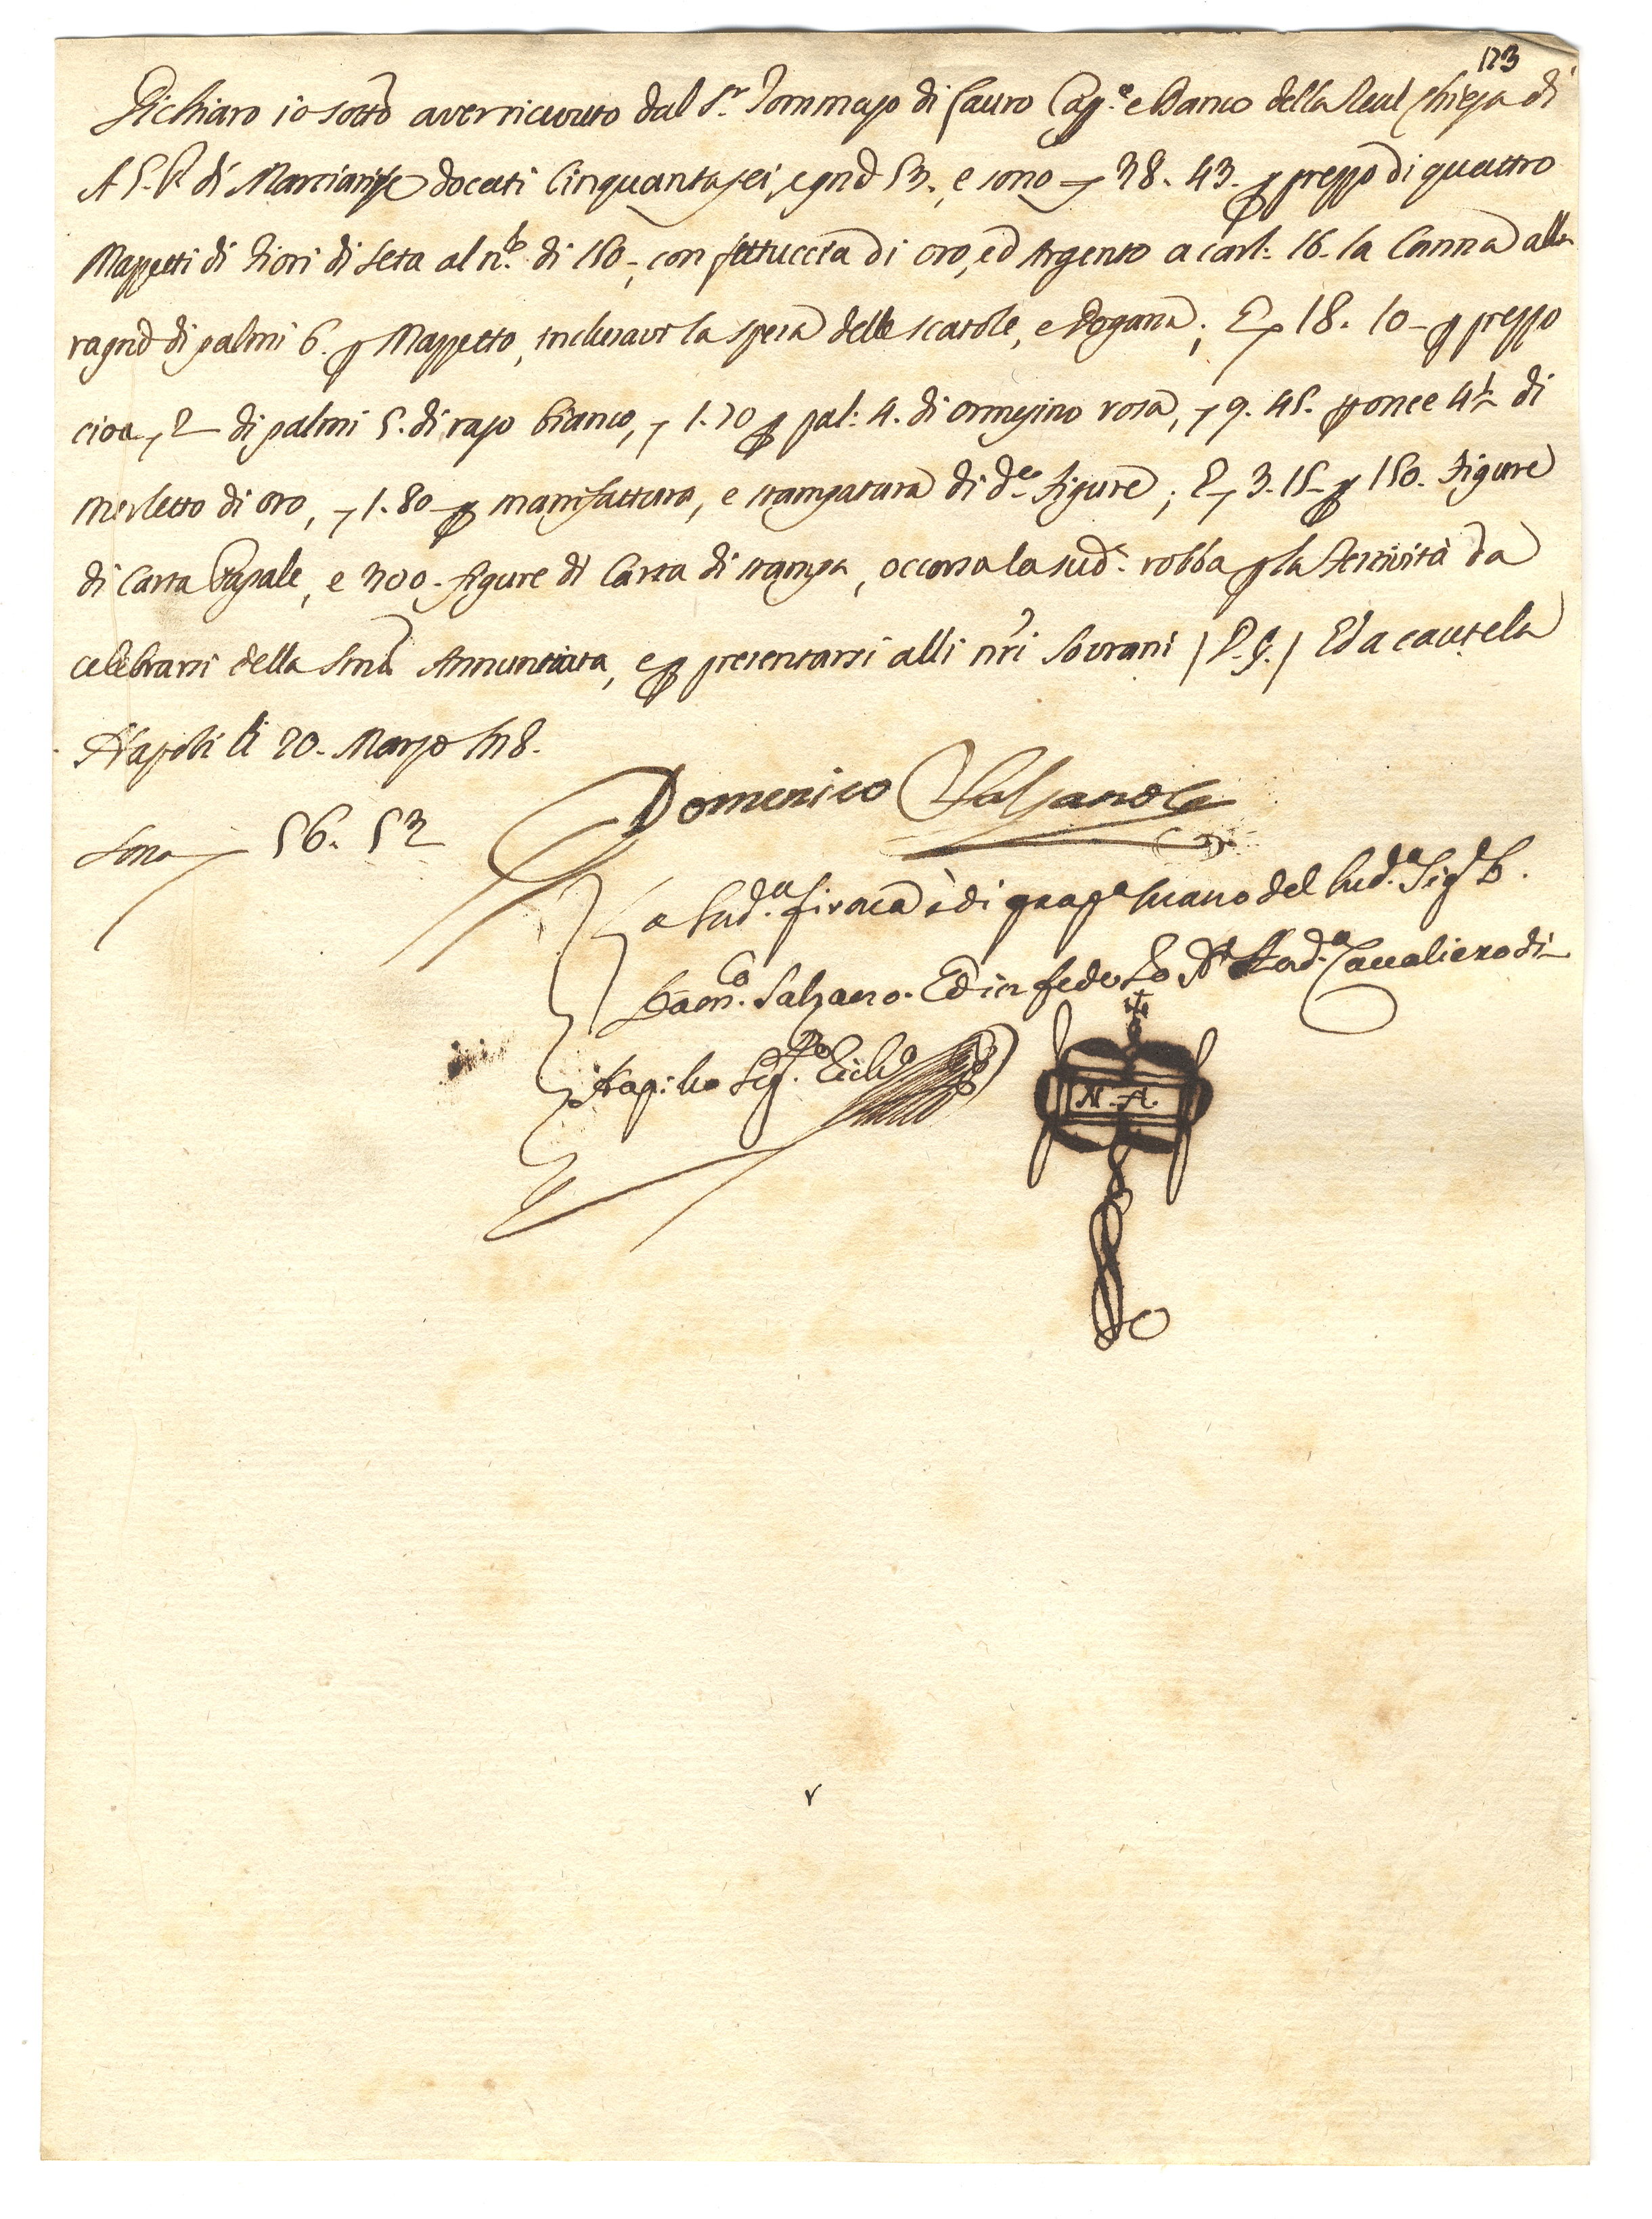 123
Dichiaro io sotto aver ricevuto dal Sr. Tommaso di Lauro Cap.e e Banco della Real Chiesa di
A. G. P. di Marcianise docati Cinquantasei, e grna 53., e sono 38. 43. p prezzo di quattro
Mazzetti di Fiori di Seta al n.o di 150, con fettuccia di oro, ed Argento a carl: 16. la Canna alla
ragne di palmi 6. p Mazzetto, inclusavi la spesa delle scatole, e Dogana; E 18. 10 p prezzo
cioè 2 di palmi 5. di raso bianco, 1.70 p pal: 4. di ormesino rosa, 9. 45. p once 4½ di
merletto di oro, 1. 80 p manifattura, e stampatura di d.e figure; E 3. 15 p 150. Figure
di Carta Papale, e 300. figure di Carta di stampa, occorsa la sud.a robba p la Festività da
celebrarsi della SSma Annunziata, e p presentarsi alli nri Sovrani / D. G. / Ed a cautela
Napoli li 20. Marzo
Sono 56. 53
Domenico Salzano
La sud.a firma è di propa mano del sud.o Sig.
Dom.co Salzano. Ed in fede Io Nr Cavaliero di
Nap. ho seg.to
N. A.